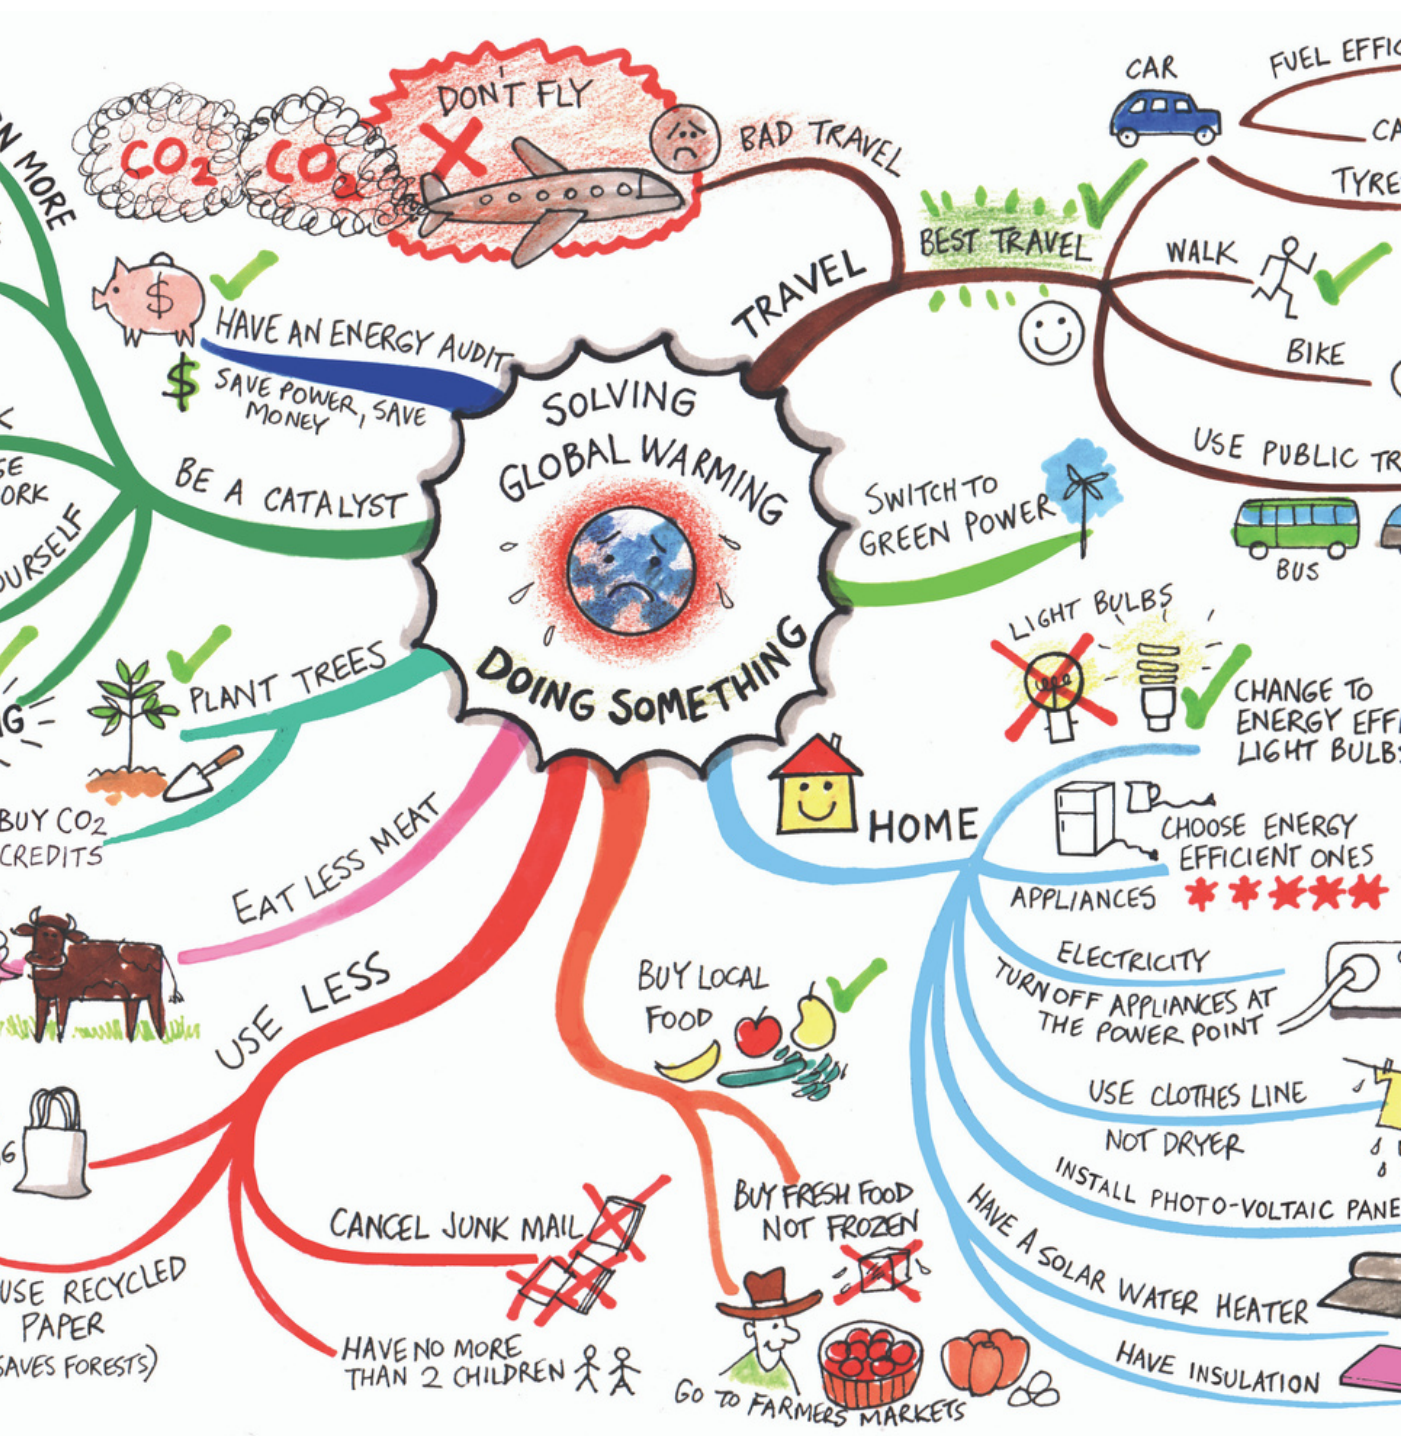 SOLVING
GLOBAL WARMING
DOING SOMETHING
DON'T FLY
CO2 CO2
BAD TRAVEL
TRAVEL
BEST TRAVEL
CAR
FUEL EFFIC
CA
TYRE
WALK
BIKE
USE PUBLIC TR
BUS
SWITCH TO
GREEN POWER
LIGHT BULBS
CHANGE TO
ENERGY EFFI
LIGHT BULBS
HOME
CHOOSE ENERGY
EFFICIENT ONES
APPLIANCES
ELECTRICITY
TURN OFF APPLIANCES AT
THE POWER POINT
USE CLOTHES LINE
NOT DRYER
INSTALL PHOTO-VOLTAIC PANE
HAVE A SOLAR WATER HEATER
HAVE INSULATION
BUY LOCAL
FOOD
BUY FRESH FOOD
NOT FROZEN
GO TO FARMERS MARKETS
USE LESS
CANCEL JUNK MAIL
HAVE NO MORE
THAN 2 CHILDREN
USE RECYCLED
PAPER
SAVES FORESTS)
G
EAT LESS MEAT
PLANT TREES
BUY CO2
CREDITS
BE A CATALYST
N MORE
K
SE
ORK
OURSELF
NG
$
HAVE AN ENERGY AUDIT
$
SAVE POWER, SAVE
MONEY